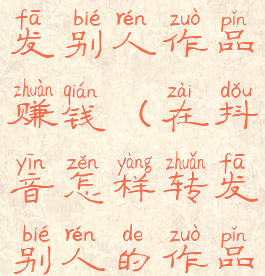 fā bié rén zuò pǐn
发别人作品
zhuàn qián zài dǒu
赚钱（在抖
yīn zěn yàng zhuǎn fā
音怎样转发
bié rén de zuò pǐn
别人的作品